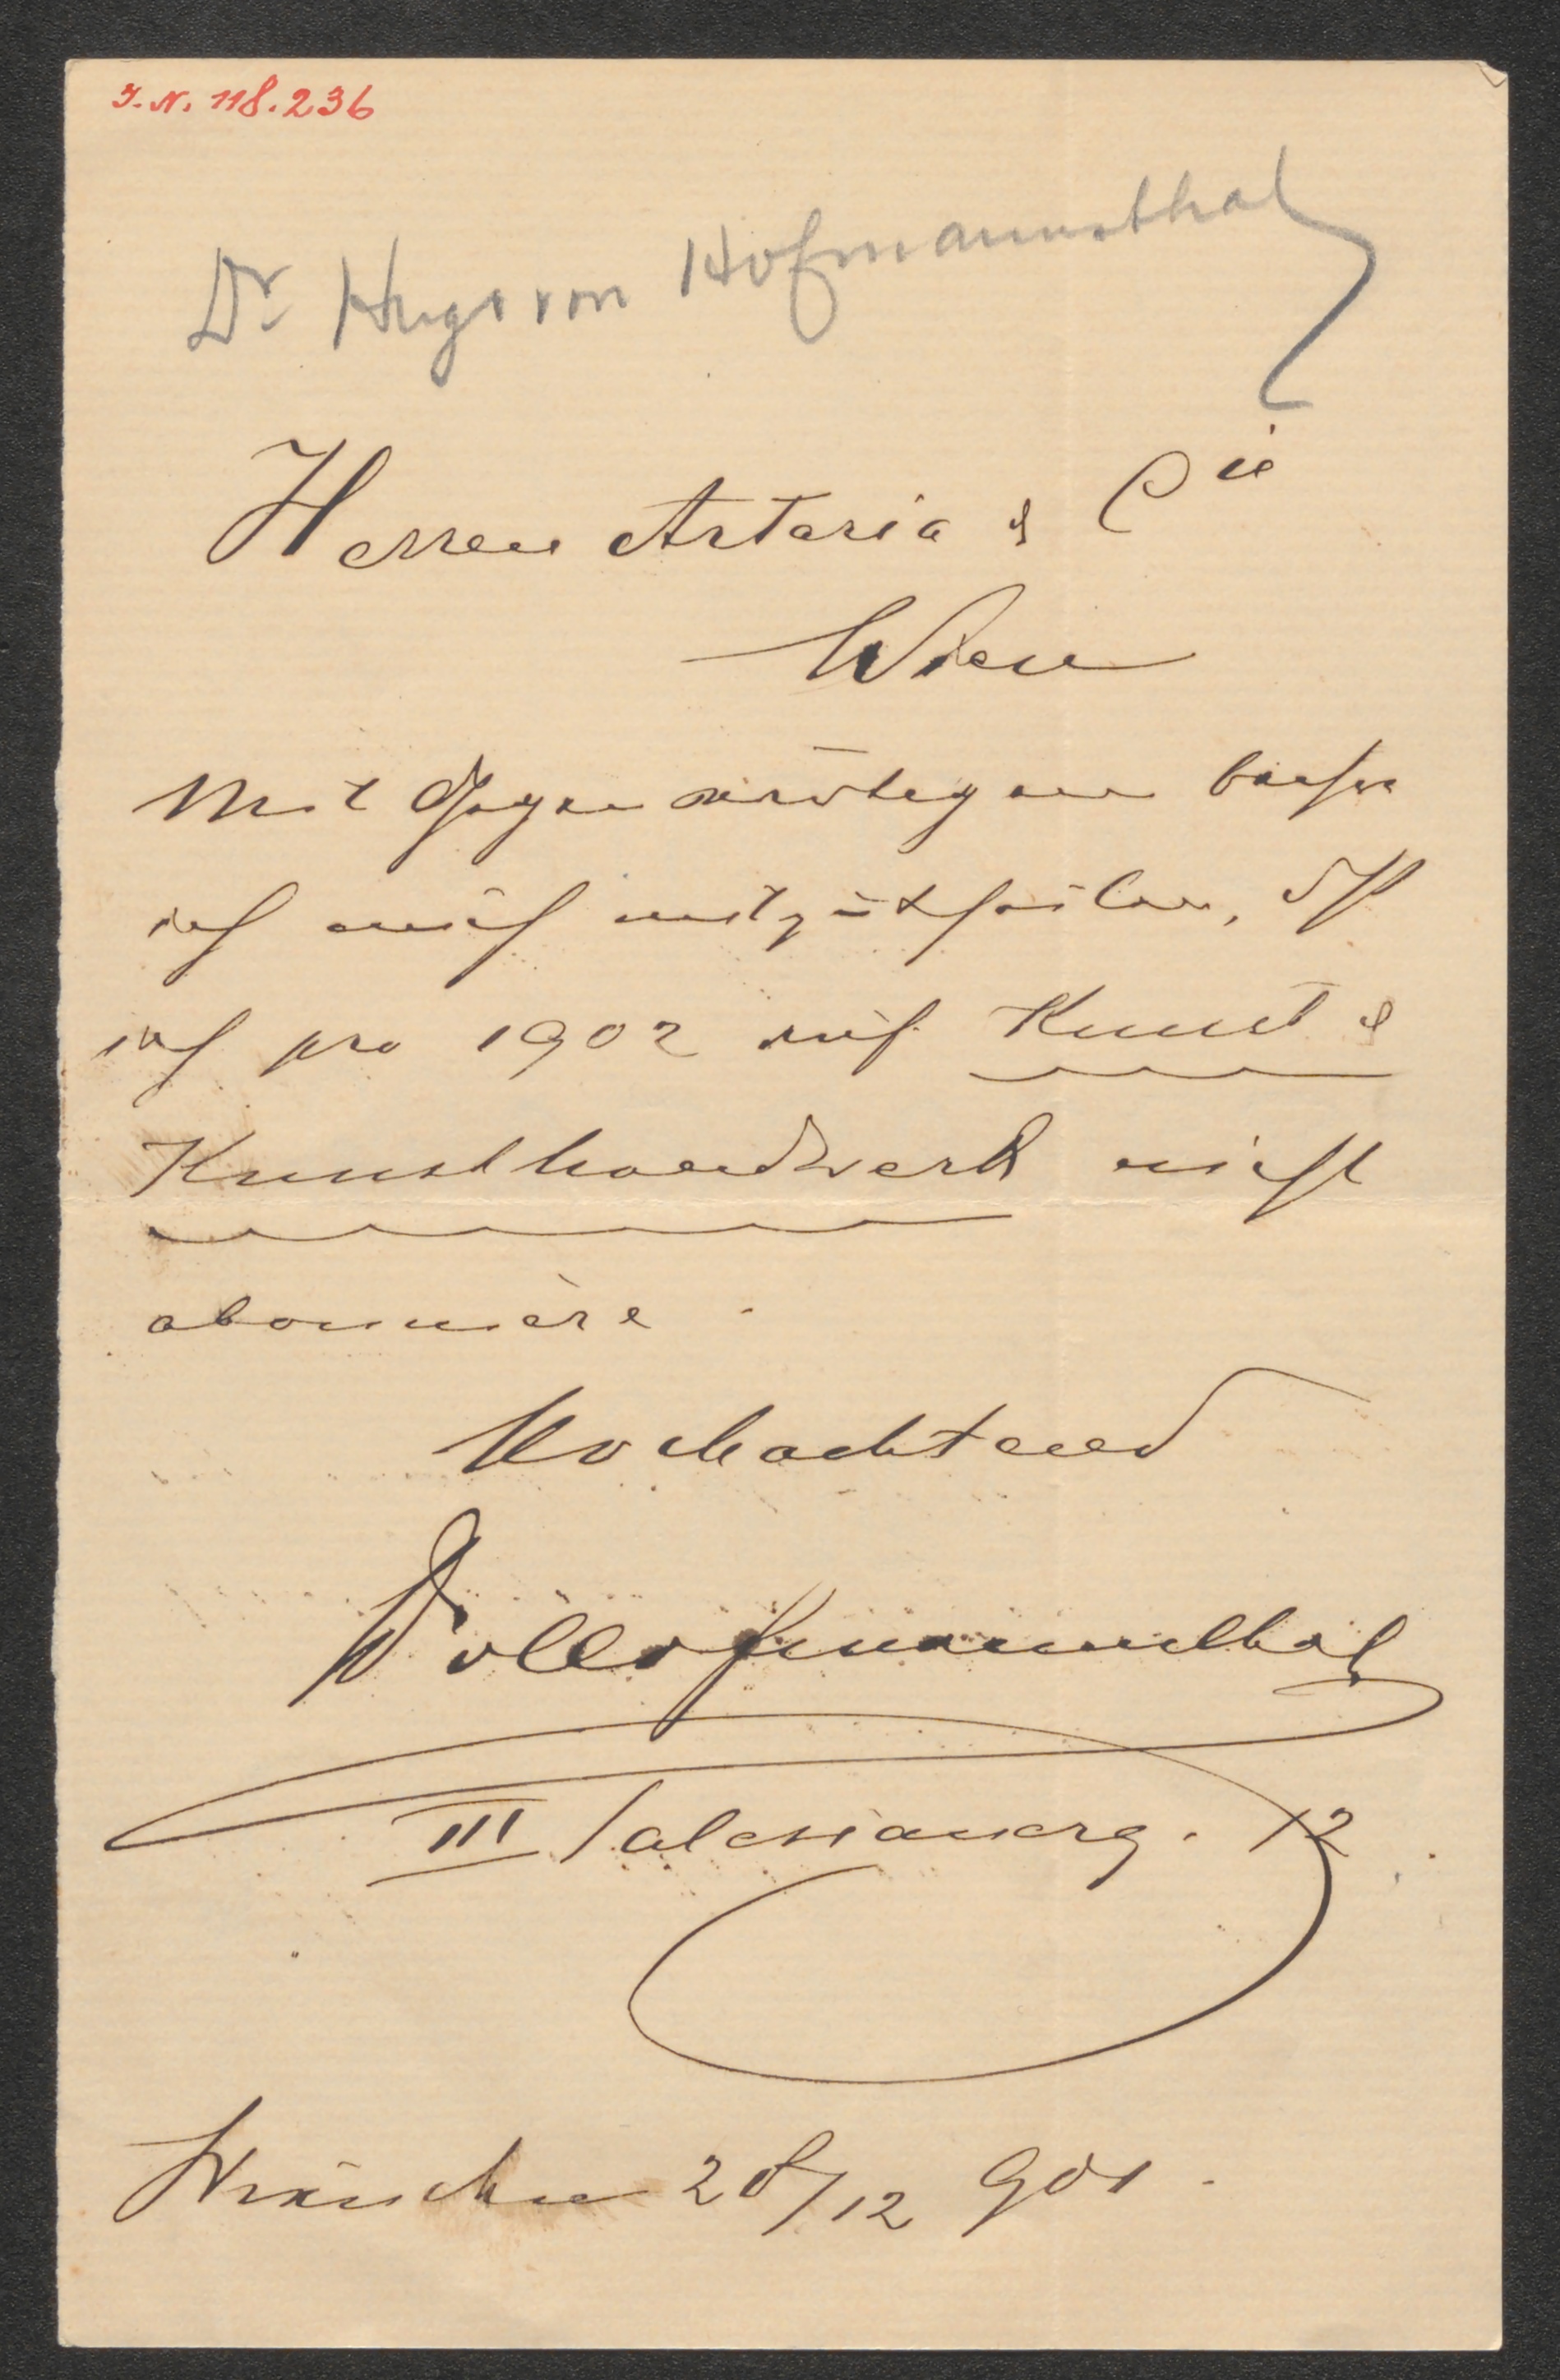 I.N. 118.236
Dr Hugo von Hofmannsthal
Herren Artaria & Cie
Wien
Mit Gegenwärtigem beehre
ich mich mitzutheilen, dß
ich pro 1902 auf Kunst &
Kunsthandwerk nicht
abonniere.
Hochachtend
Hofmannsthal
III Salesianerg. 12
28/12 901.